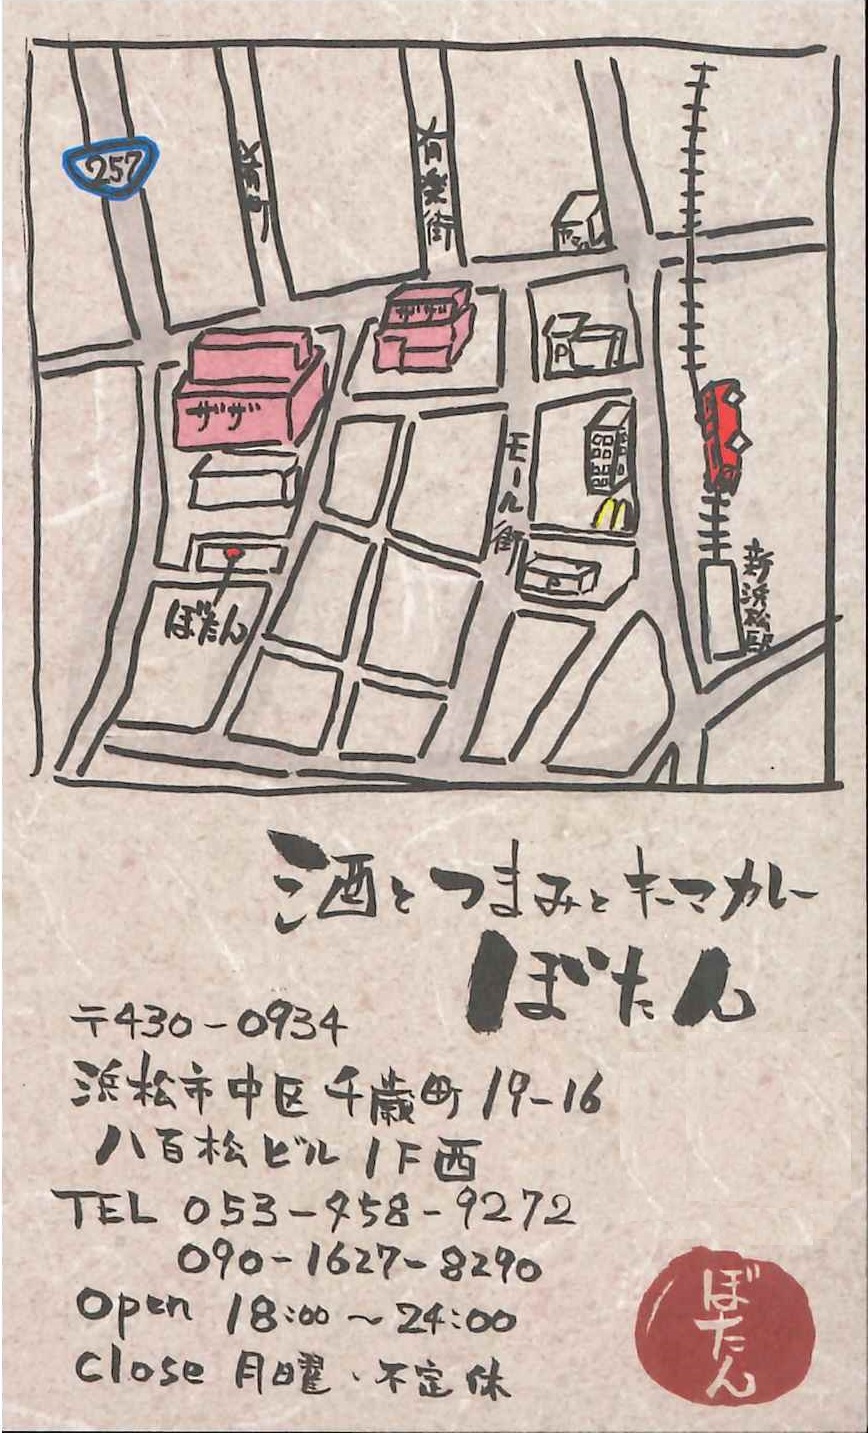 257
肴町
有楽街
ヤマハ
ザザ
P
ザザ
モール街
P
新浜松駅
ぼたん
酒とつまみとキーマカレー
ぼたん
〒430-0934
浜松市中区千歳町19-16
八百松ビル1F西
TEL 053-458-9272
090-1627-8290
Open 18:00～24:00
Close 月曜、不定休
ぼたん